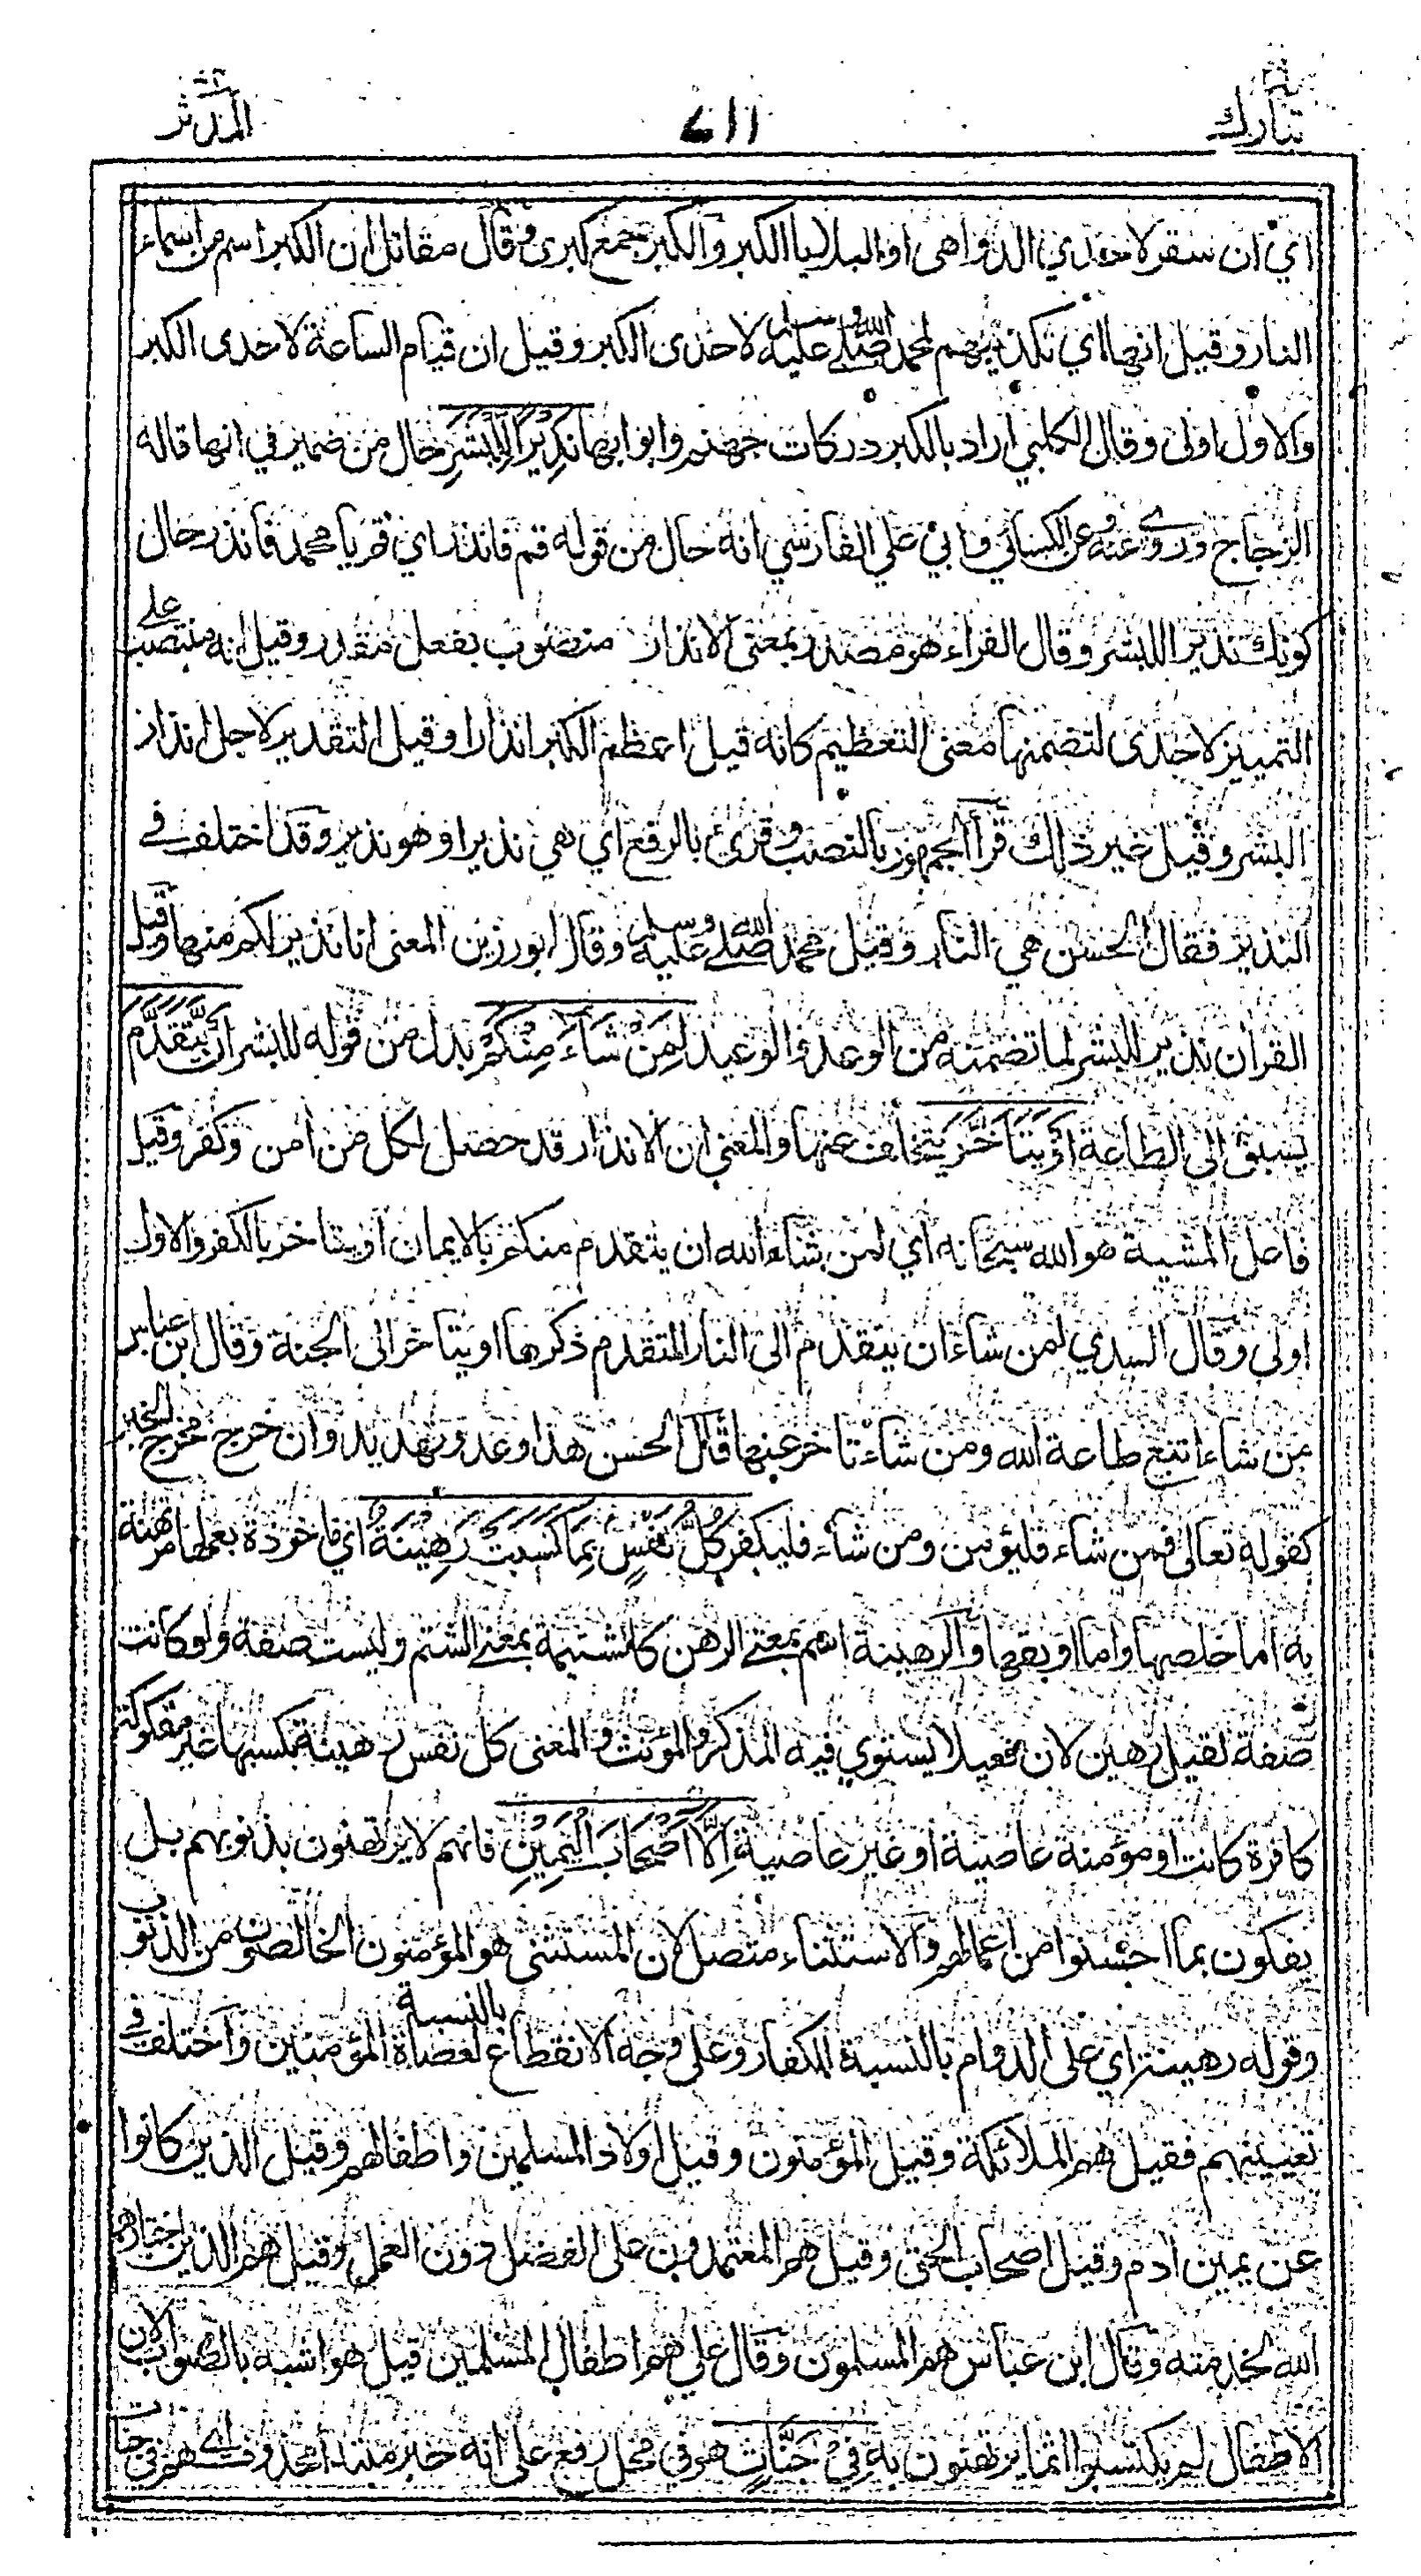 تبارك
٦١١
المدثر
اي ان سقر لاحدى الدواهي او البلايا الكبر والكبر جمع كبرى وقال مقاتل ان الكبر اسم من اسماء
النار وقيل انها اي تكذيبهم لمحمد صلى الله عليه وسلم لاحدى الكبر وقيل ان قيام الساعة لاحدى الكبر
والاول اولى وقال الكلبي اراد بالكبر دركات جهنم وابوابها نَذِيرًا لِّلْبَشَرِ حال من ضمير في انها قاله
الزجاج وروي عنه وعن الكسائي وابي علي الفارسي انه حال من قوله قم فانذر اي قم يا محمد فانذر حال
كونك نذيرا للبشر وقال الفراء هو مصدر بمعنى الانذار منصوب بفعل مقدر وقيل انه منتصب على
التمييز لاحدى لتضمنها معنى التعظيم كانه قيل اعظم الكبر انذارا وقيل التقدير لاجل انذار
البشر وقيل غير ذلك قرأ الجمهور بالنصب وقرئ بالرفع اي هي نذير او هو نذير وقد اختلف في
النذير فقال الحسن هي النار وقيل محمد صلى الله عليه وسلم وقال ابو رزين المعنى انا نذير لكم منها وقيل
القران نذير للبشر لما تضمنه من الوعد والوعيد لِمَنْ شَاءَ مِنْكُمْ بدل من قوله للبشر أَنْ يَتَقَدَّمَ
يسبق الى الطاعة أَوْ يَتَأَخَّرَ يتخلف عنها والمعنى ان الانذار قد حصل لكل من امن وكفر وقيل
فاعل المشية هو الله سبحانه اي لمن شاء الله ان يتقدم منكم بالايمان او يتاخر بالكفر والاول
اولى وقال السدي لمن شاء ان يتقدم الى النار المتقدم ذكرها او يتاخر الى الجنة وقال ابن عباس
من شاء اتبع طاعة الله ومن شاء تاخر عنها قال الحسن هذا وعد وتهديد وان خرج مخرج الخبر
كقوله تعالى فمن شاء فليؤمن ومن شاء فليكفر كُلُّ نَفْسٍ بِمَا كَسَبَتْ رَهِينَةٌ اي ماخوذة بعملها مرتهنة
به اما خلصها واما اوبقها والرهينة اسم بمعنى الرهن كالشتيمة بمعنى الشتم وليست صفة ولو كانت
صفة لقيل رهين لان فعيلا يستوي فيه المذكر والمؤنث والمعنى كل نفس رهينة بكسبها غير مفكوكة
كافرة كانت او مؤمنة عاصية او غير عاصية إِلَّا أَصْحَابَ الْيَمِينِ فانهم لا يرتهنون بذنوبهم بل
يفكون بما احسنوا من اعمالهم والاستثناء متصل لان المستثنى هو المؤمنون الخالصون من الذنوب
وقوله رهينة اي على الدوام بالنسبة للكفار وعلى وجه الانقطاع بالنسبة لعصاة المؤمنين واختلف في
تعيينهم فقيل هم الملائكة وقيل المؤمنون وقيل اولاد المسلمين واطفالهم وقيل الذين كانوا
عن يمين ادم وقيل اصحاب الحق وقيل هم المعتمدون على الفضل دون العمل وقيل هم الذين اختارهم
الله لخدمته وقال ابن عباس هم المسلمون وقال علي هم اطفال المسلمين قيل هو اشبه بالصواب لان
الاطفال لم يكتسبوا اثما يرتهنون به فِي جَنَّاتٍ هو في محل رفع على انه خبر مبتدأ محذوف اي هم في جنات